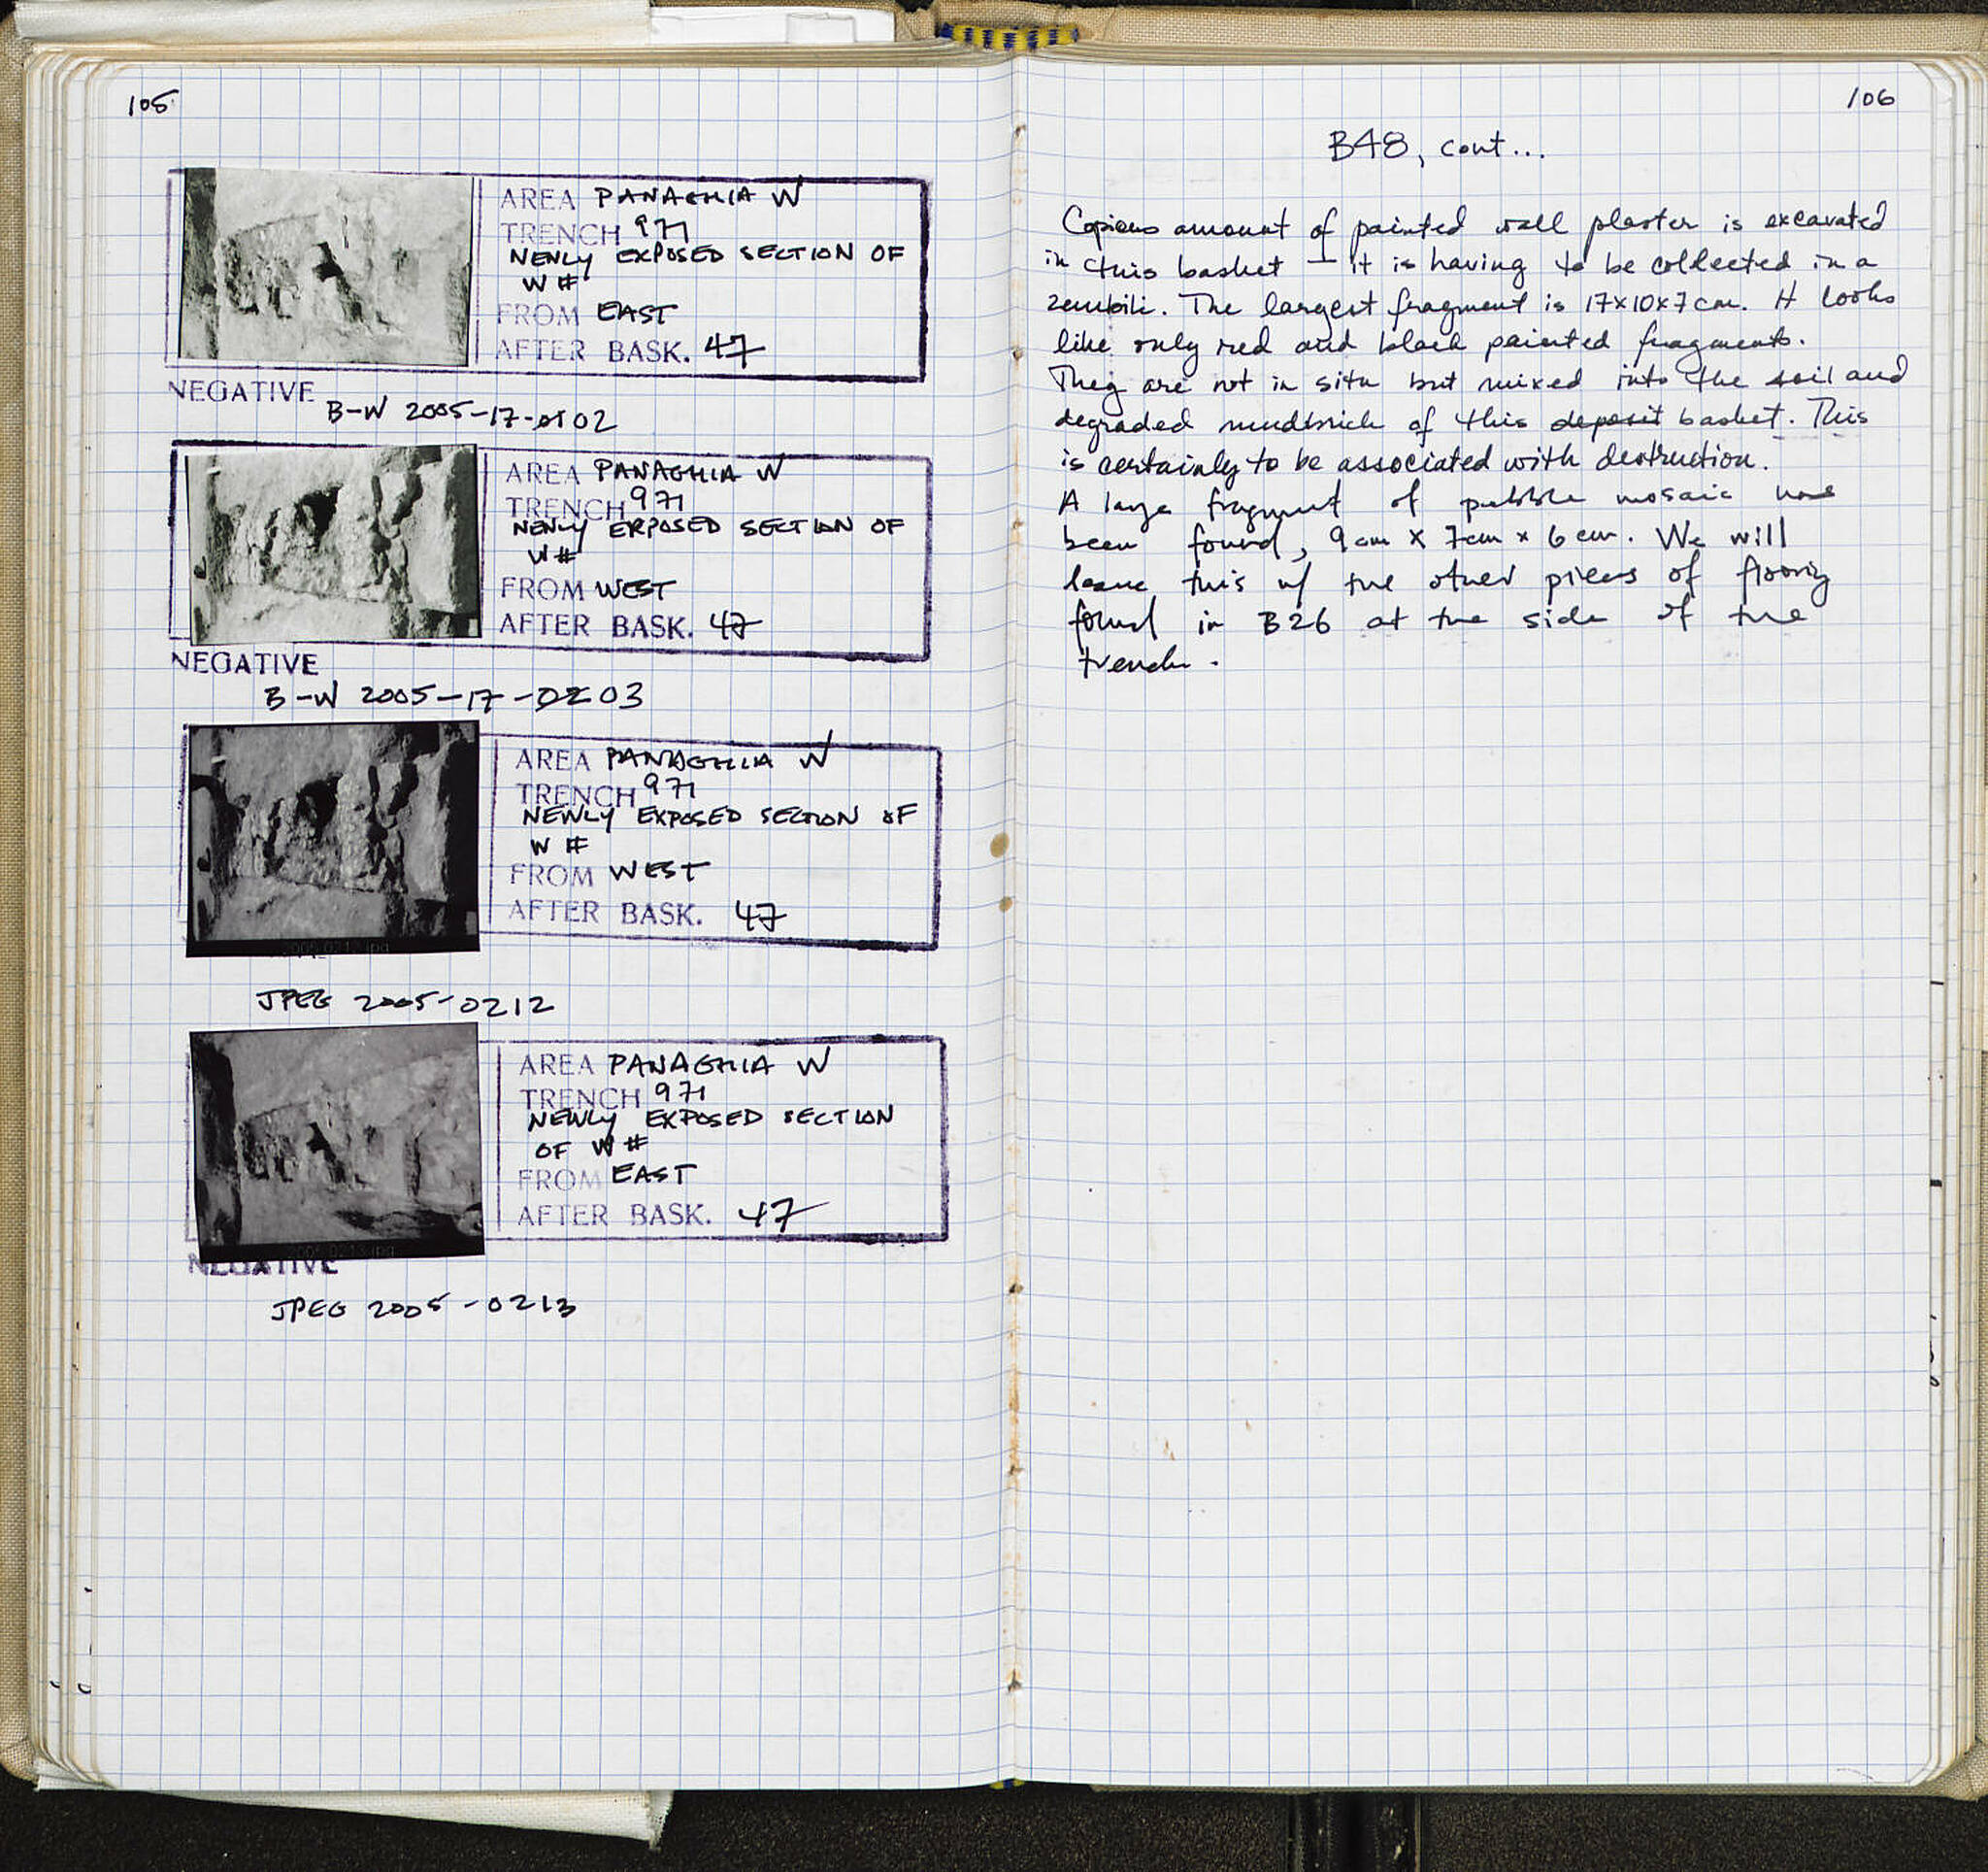 105
AREA PANAGHIA W
TRENCH 971
NEWLY EXPOSED SECTION OF
W #
FROM EAST
AFTER BASK. 47
NEGATIVE
B-W 2005-17-0102
AREA PANAGHIA W
TRENCH 971
NEWLY EXPOSED SECTION OF
W #
FROM WEST
AFTER BASK. 47
NEGATIVE
B-W 2005-17-0203
AREA PANAGHIA W
TRENCH 971
NEWLY EXPOSED SECTION OF
W #
FROM WEST
AFTER BASK. 47
2005 0212.jpg
JPEG 2005-0212
AREA PANAGHIA W
TRENCH 971
NEWLY EXPOSED SECTION
OF W #
FROM EAST
AFTER BASK. 47
2005 0213.jpg
NEGATIVE
JPEG 2005-0213
106
B48, cont...
Copious amount of painted wall plaster is excavated
in this basket - it is having to be collected in a
zembili. The largest fragment is 17x10x7cm. It looks
like only red and black painted fragments.
They are not in situ but mixed into the soil and
degraded mudbrick of this deposit basket. This
is certainly to be associated with destruction.
A large fragment of pebble mosaic has
been found, 9cm x 7cm x 6cm. We will
leave this w/ the other pieces of flooring
found in B26 at the side of the
trench.